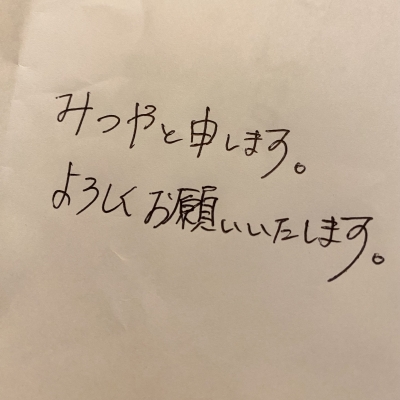 みつやと申します。
よろしくお願いいたします。